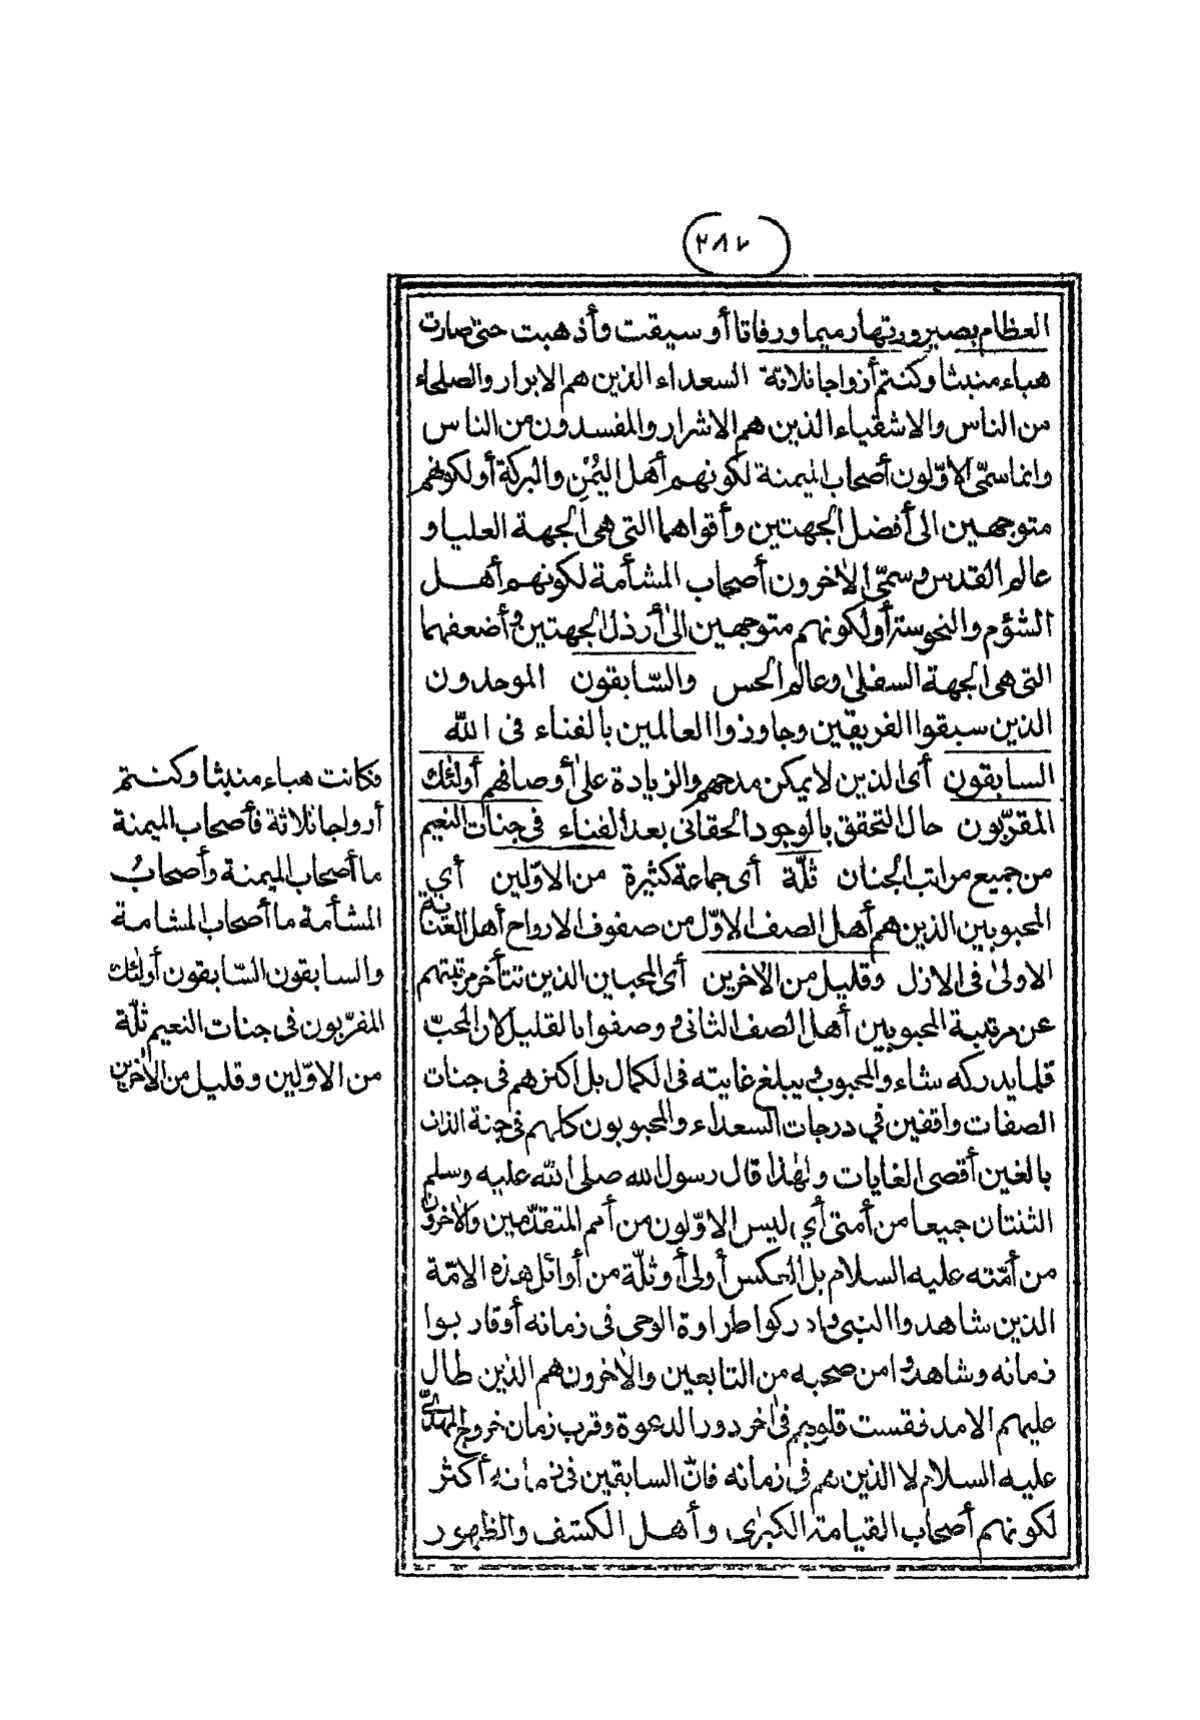 ٢٨٧
العظام بصيرورتها رميما ورفاتا أو سيقت وأذهبت حتى صارت
هباء منبثا وكنتم أزواجا ثلاثة السعداء الذين هم الابرار والصلحاء
من الناس والاشقياء الذين هم الاشرار والمفسدون من الناس
وانما سمّى الأوّلون أصحاب الميمنة لكونهم أهل اليُمْن والبركة أو لكونهم
متوجهين الى أفضل الجهتين وأقواهما التى هى الجهة العليا و
عالم القدس وسمّى الآخرون أصحاب المشأمة لكونهم أهل
الشؤم والنحوسة أو لكونهم متوجهين الى أرذل الجهتين وأضعفهما
التى هى الجهة السفلى وعالم الحس والسّابقون الموحدون
الذين سبقوا الفريقين وجاوزوا العالمين بالفناء فى الله
السابقون أى الذين لا يمكن مدحهم والزيادة على أوصافهم أولئك
المقرّبون حال التحقق بالوجود الحقانى بعد الفناء فى جنات النعيم
من جميع مراتب الجنان ثلّة أى جماعة كثيرة من الاوّلين أي
المحبوبين الذين هم أهل الصف الاوّل من صفوف الارواح أهل العناية
الاولى فى الازل وقليل من الآخرين أى المحبين الذين تتأخر مرتبتهم
عن مرتبة المحبوبين أهل الصف الثانى وصفوا بالقليل لان المحبّ
قلما يدركه شاء والمحبوب يبلغ غايته فى الكمال بل اكثرهم فى جنات
الصفات واقفين في درجات السعداء والمحبوبون كلهم فى جنة الذات
بالغين أقصى الغايات ولهذا قال رسول الله صلى الله عليه وسلم
الثنتان جميعا من أمتى أي ليس الاوّلون من أمم المتقدّمين والآخرون
من أمّته عليه السلام بل العكس أولى أو ثلّة من أوائل هذه الامّة
الذين شاهدوا النبى وادركوا طراوة الوحى فى زمانه أو قاربوا
زمانه وشاهدوا من صحبه من التابعين والآخرون هم الذين طال
عليهم الامد فقست قلوبهم فى آخر دور الدعوة وقرب زمان خروج المهدىّ
عليه السلام لا الذين هم فى زمانه فانّ السابقين فى زمانه أكثر
لكونهم أصحاب القيامة الكبرى وأهل الكشف والظهور
فكانت هباء منبثا وكنتم
أزواجا ثلاثة فأصحاب الميمنة
ما أصحاب الميمنة وأصحابُ
المشأمة ما أصحاب المشامة
والسابقون السّابقون أولئك
المقرّبون فى جنات النعيم ثلّة
من الاوّلين وقليل من الآخرين